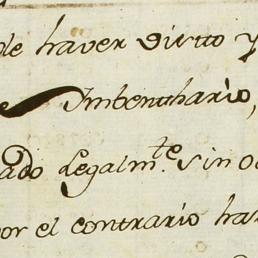 de haver visto y
Imbenthario,
ado Legalm.te sin o
por el contrario ha